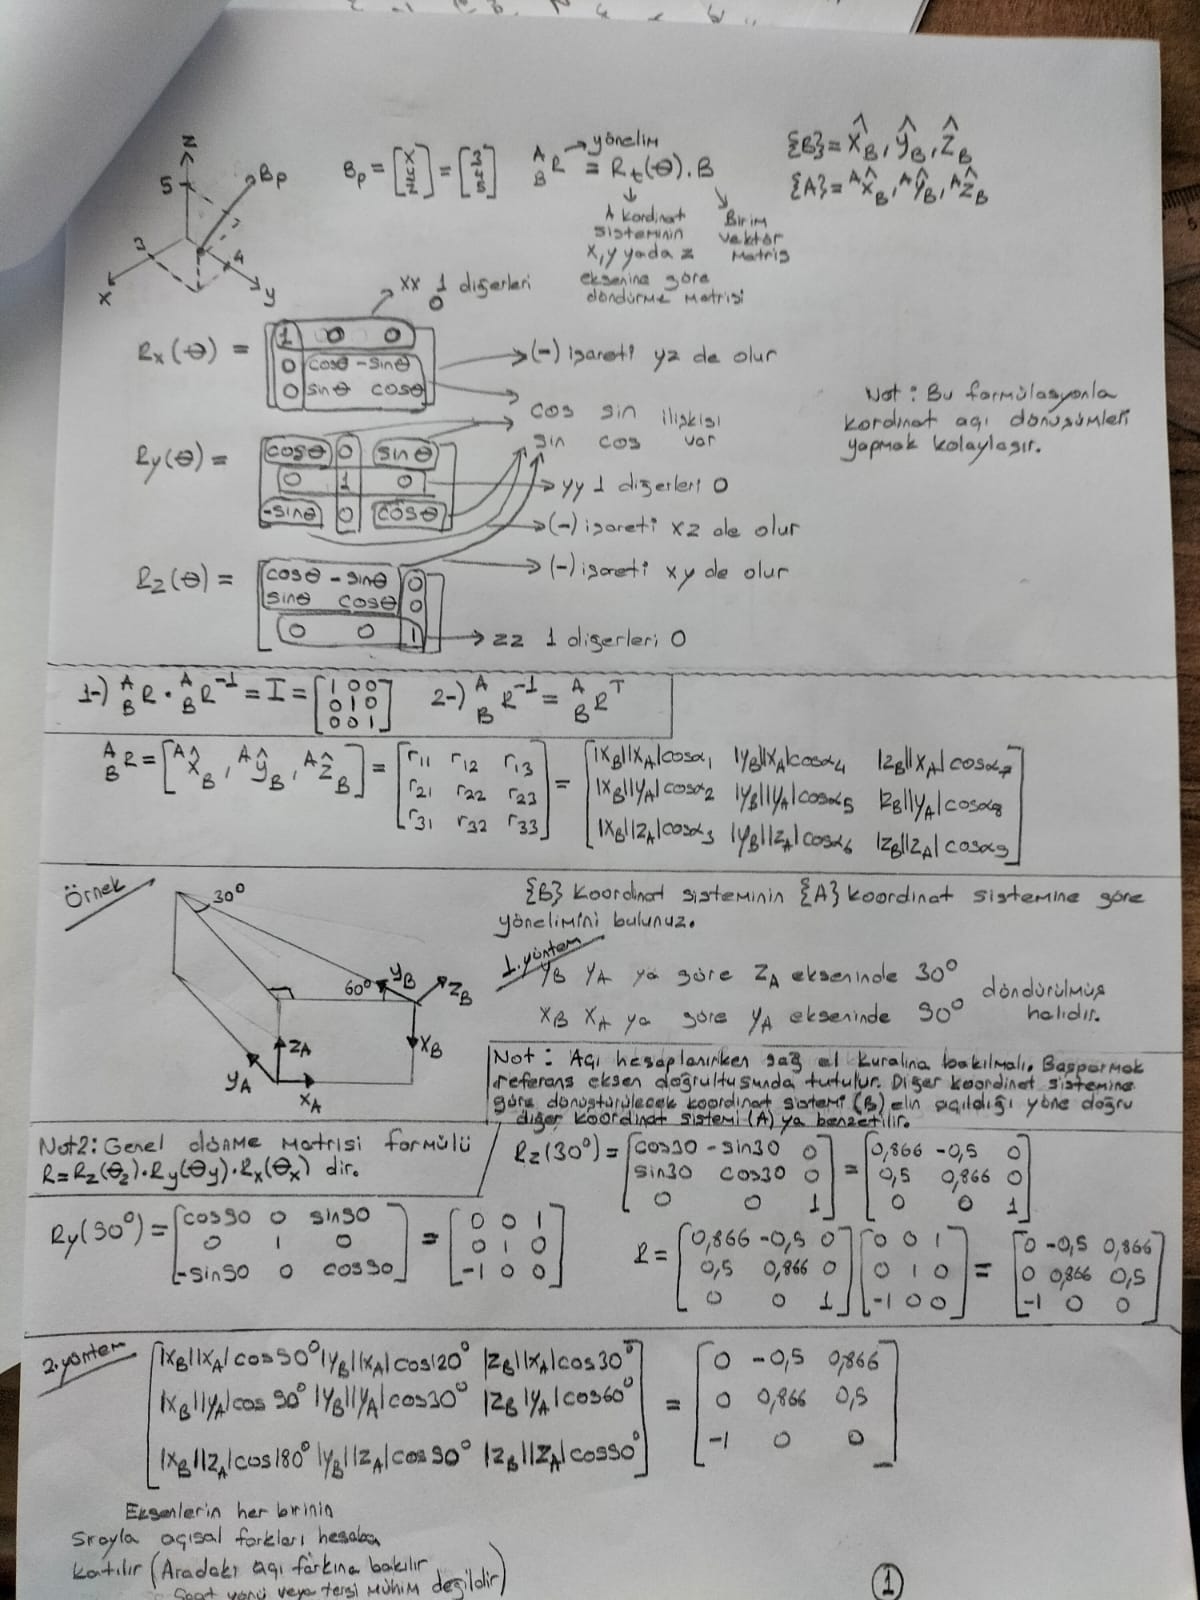 Z
5
Bp
3
4
X
y
Bp = [x y z] = [3 4 5]
A B R = Rt(θ).B
yönelim
A kordinat
sisteminin
x, y yada z
eksenine göre
döndürme matrisi
Birim
vektör
matris
{B} = X̂B, ŷB, ẐB
{A} = Ax̂B, AŷB, AẑB
xx 1 diğerleri
0
Rx(θ) = [1 0 0
0 cosθ -sinθ
0 sinθ cosθ]
(-) işareti yz de olur
cos sin ilişkisi
sin cos var
Ry(θ) = [cosθ 0 sinθ
0 1 0
-sinθ 0 cosθ]
yy 1 diğerleri 0
(-) işareti xz de olur
Rz(θ) = [cosθ -sinθ 0
sinθ cosθ 0
0 0 1]
(-) işareti xy de olur
zz 1 diğerleri 0
Not: Bu formülasyonla
kordinat açı dönüşümleri
yapmak kolaylaşır.
1-) A B R . A B R⁻¹ = I = [1 0 0
0 1 0
0 0 1]
2-) A B R⁻¹ = A B Rᵀ
A B R = [Ax̂B, AŷB, AẑB] = [r11 r12 r13
r21 r22 r23
r31 r32 r33]
= [|XB||XA|cosα1 |yB||XA|cosα4 |zB||XA|cosα7
|XB||yA|cosα2 |yB||yA|cosα5 |zB||yA|cosα8
|XB||zA|cosα3 |yB||zA|cosα6 |zB||zA|cosα9]
Örnek
30°
60°
yB
zB
xB
zA
yA
xA
{B} koordinat sisteminin {A} koordinat sistemine göre
yönelimini bulunuz.
1. yöntem
yB yA ya göre zA ekseninde 30°
xB xA ya göre yA ekseninde 90°
döndürülmüş
halidir.
Not: Açı hesaplanırken sağ el kuralına bakılmalı. Başparmak
referans eksen doğrultusunda tutulur. Diğer koordinat sistemine
göre dönüştürülecek koordinat sistemi (B) elin açıldığı yöne doğru
diğer koordinat sistemi (A) ya benzetilir.
Not2: Genel dönme matrisi formülü
R = Rz(θz).Ry(θy).Rx(θx) dir.
Rz(30°) = [cos30 -sin30 0
sin30 cos30 0
0 0 1]
= [0,866 -0,5 0
0,5 0,866 0
0 0 1]
Ry(90°) = [cos90 0 sin90
0 1 0
-sin90 0 cos90]
= [0 0 1
0 1 0
-1 0 0]
R = [0,866 -0,5 0
0,5 0,866 0
0 0 1]
[0 0 1
0 1 0
-1 0 0]
= [0 -0,5 0,866
0 0,866 0,5
-1 0 0]
2. yöntem
[|XB||XA|cos90° |yB||XA|cos120° |zB||XA|cos30°
|XB||yA|cos90° |yB||yA|cos30° |zB|yA|cos60°
|XB||zA|cos180° |yB||zA|cos90° |zB||zA|cos90°]
= [0 -0,5 0,866
0 0,866 0,5
-1 0 0]
Eksenlerin her birinin
Sırayla açısal farkları hesaba
katılır (Aradaki açı farkına bakılır
Saat yönü veya tersi mühim değildir)
1